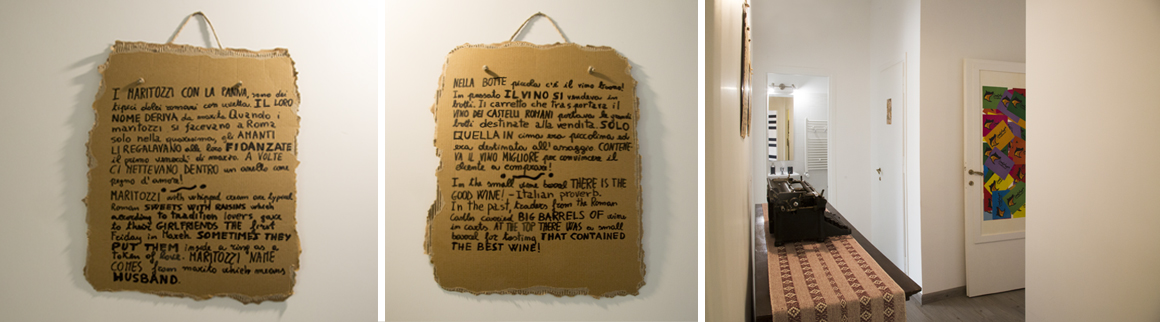 I MARITOZZI CON LA PANNA, sono dei
tipici dolci romani con uvetta. IL LORO
NOME DERIVA da marito. Quando i
maritozzi si facevano a Roma
solo nella quaresima, gli AMANTI
LI REGALAVANO alle loro FIDANZATE
il primo venerdì di marzo. A VOLTE
CI METTEVANO DENTRO un anello come
pegno d'amore!
MARITOZZI with whipped cream are typical
Roman SWEETS WITH RAISINS which
according to tradition lovers gave
to their GIRLFRIENDS THE first
Friday in March. SOMETIMES THEY
PUT THEM inside a ring as a
Token of love. MARITOZZI NAME
COMES from marito which means
HUSBAND.
NELLA BOTTE piccola c'è il vino buono!
In passato IL VINO SI vendeva in
botti. Il carretto che trasportava il
VINO DEI CASTELLI ROMANI portava le grandi
botti destinate alla vendita. SOLO
QUELLA IN cima era piccolina ed
era destinata all'assaggio. CONTENE-
VA IL VINO MIGLIORE per convincere il
cliente a comprare!
In the small wine barrel THERE IS THE
GOOD WINE! - Italian proverb.
In the past, traders from the Roman
Castles carried BIG BARRELS OF wine
in carts. AT THE TOP THERE WAS a small
barrel for tasting THAT CONTAINED
THE BEST WINE!